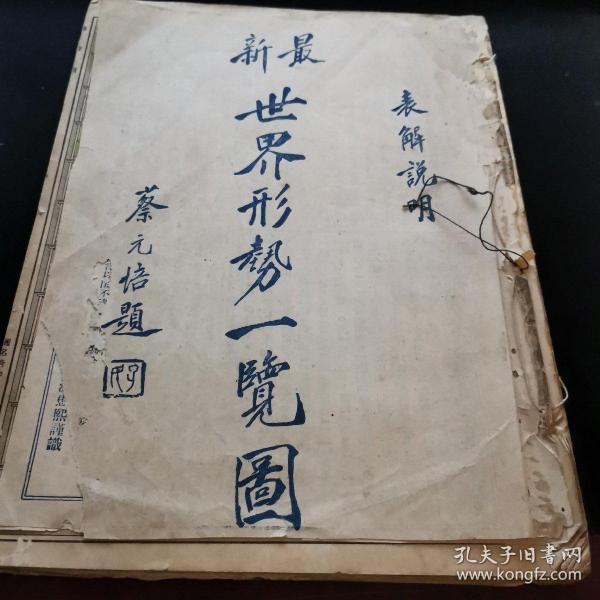 表解說明
最新
世界形勢一覽圖
蔡元培題
熙謹識
孔夫子旧书网
www.kongfz.com